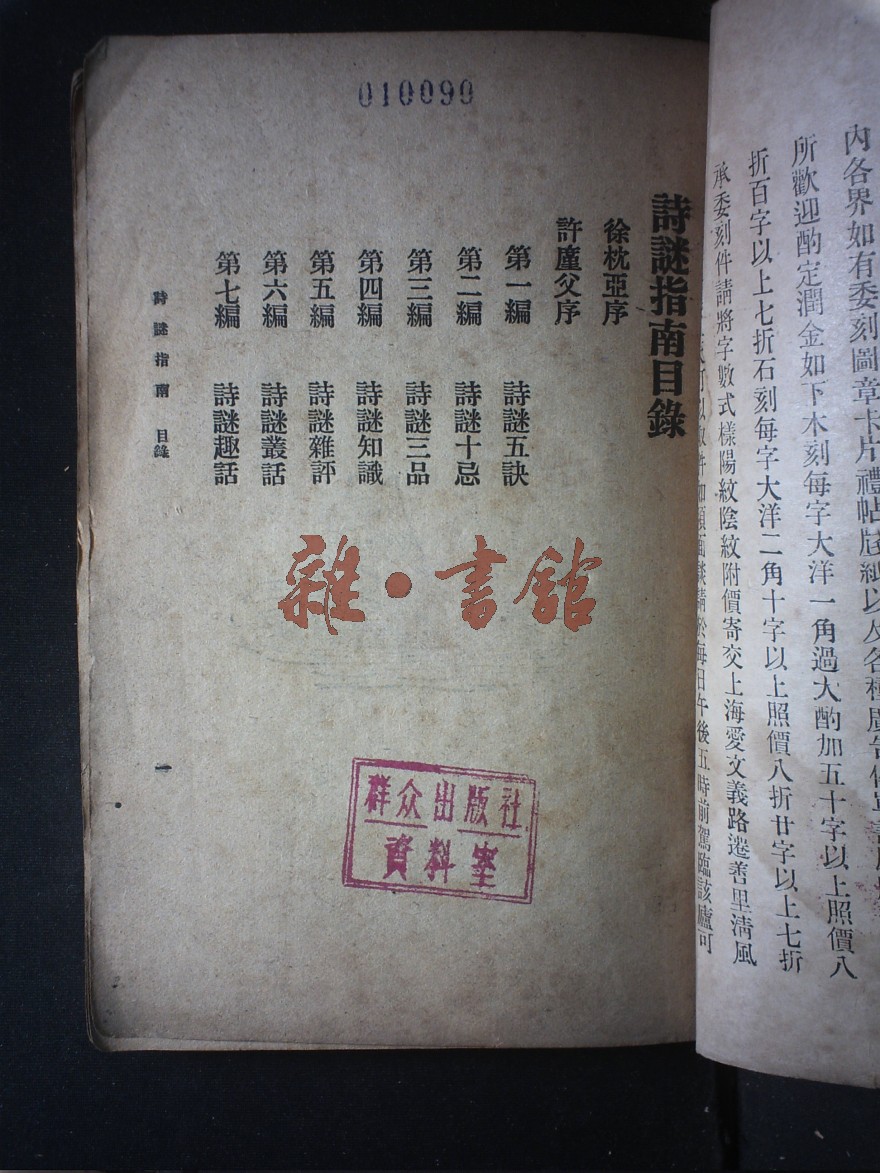 內各界如有委刻圖章卡片禮帖
所歡迎酌定潤金如下木刻每字大洋一角過大酌加五十字以上照價八
折百字以上七折石刻每字大洋二角十字以上照價八折廿字以上七折
承委刻件請將字數式樣陽紋陰紋附價寄交上海愛文義路遷善里淸風
面談請於每日午後五時前駕臨該廬可
010090
詩謎指南目錄
徐枕亞序
許廑父序
第一編 詩謎五訣
第二編 詩謎十忌
第三編 詩謎三品
第四編 詩謎知識
第五編 詩謎雜評
第六編 詩謎叢話
第七編 詩謎趣話
詩謎指南 目錄 一
雜·書館
群众出版社
資料室